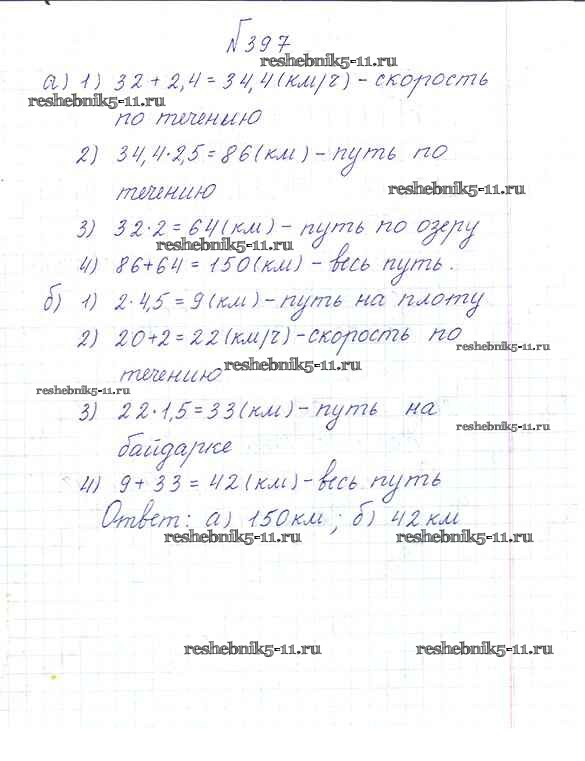 №397
reshebnik5-11.ru
а) 1) 32 + 2,4 = 34,4 (км/ч) - скорость
reshebnik5-11.ru
по течению
2) 34,4·2,5 = 86 (км) - путь по
течению
reshebnik5-11.ru
3) 32·2 = 64 (км) - путь по озеру
reshebnik5-11.ru
4) 86+64 = 150 (км) - весь путь.
б) 1) 2·4,5 = 9 (км) - путь на плоту
2) 20+2 = 22 (км/ч) - скорость по
reshebnik5-11.ru
течению
reshebnik5-11.ru
reshebnik5-11.ru
3) 22·1,5 = 33 (км) - путь на
reshebnik5-11.ru
байдарке
4) 9 + 33 = 42 (км) - весь путь
Ответ: а) 150 км; б) 42 км
reshebnik5-11.ru reshebnik5-11.ru
reshebnik5-11.ru reshebnik5-11.ru